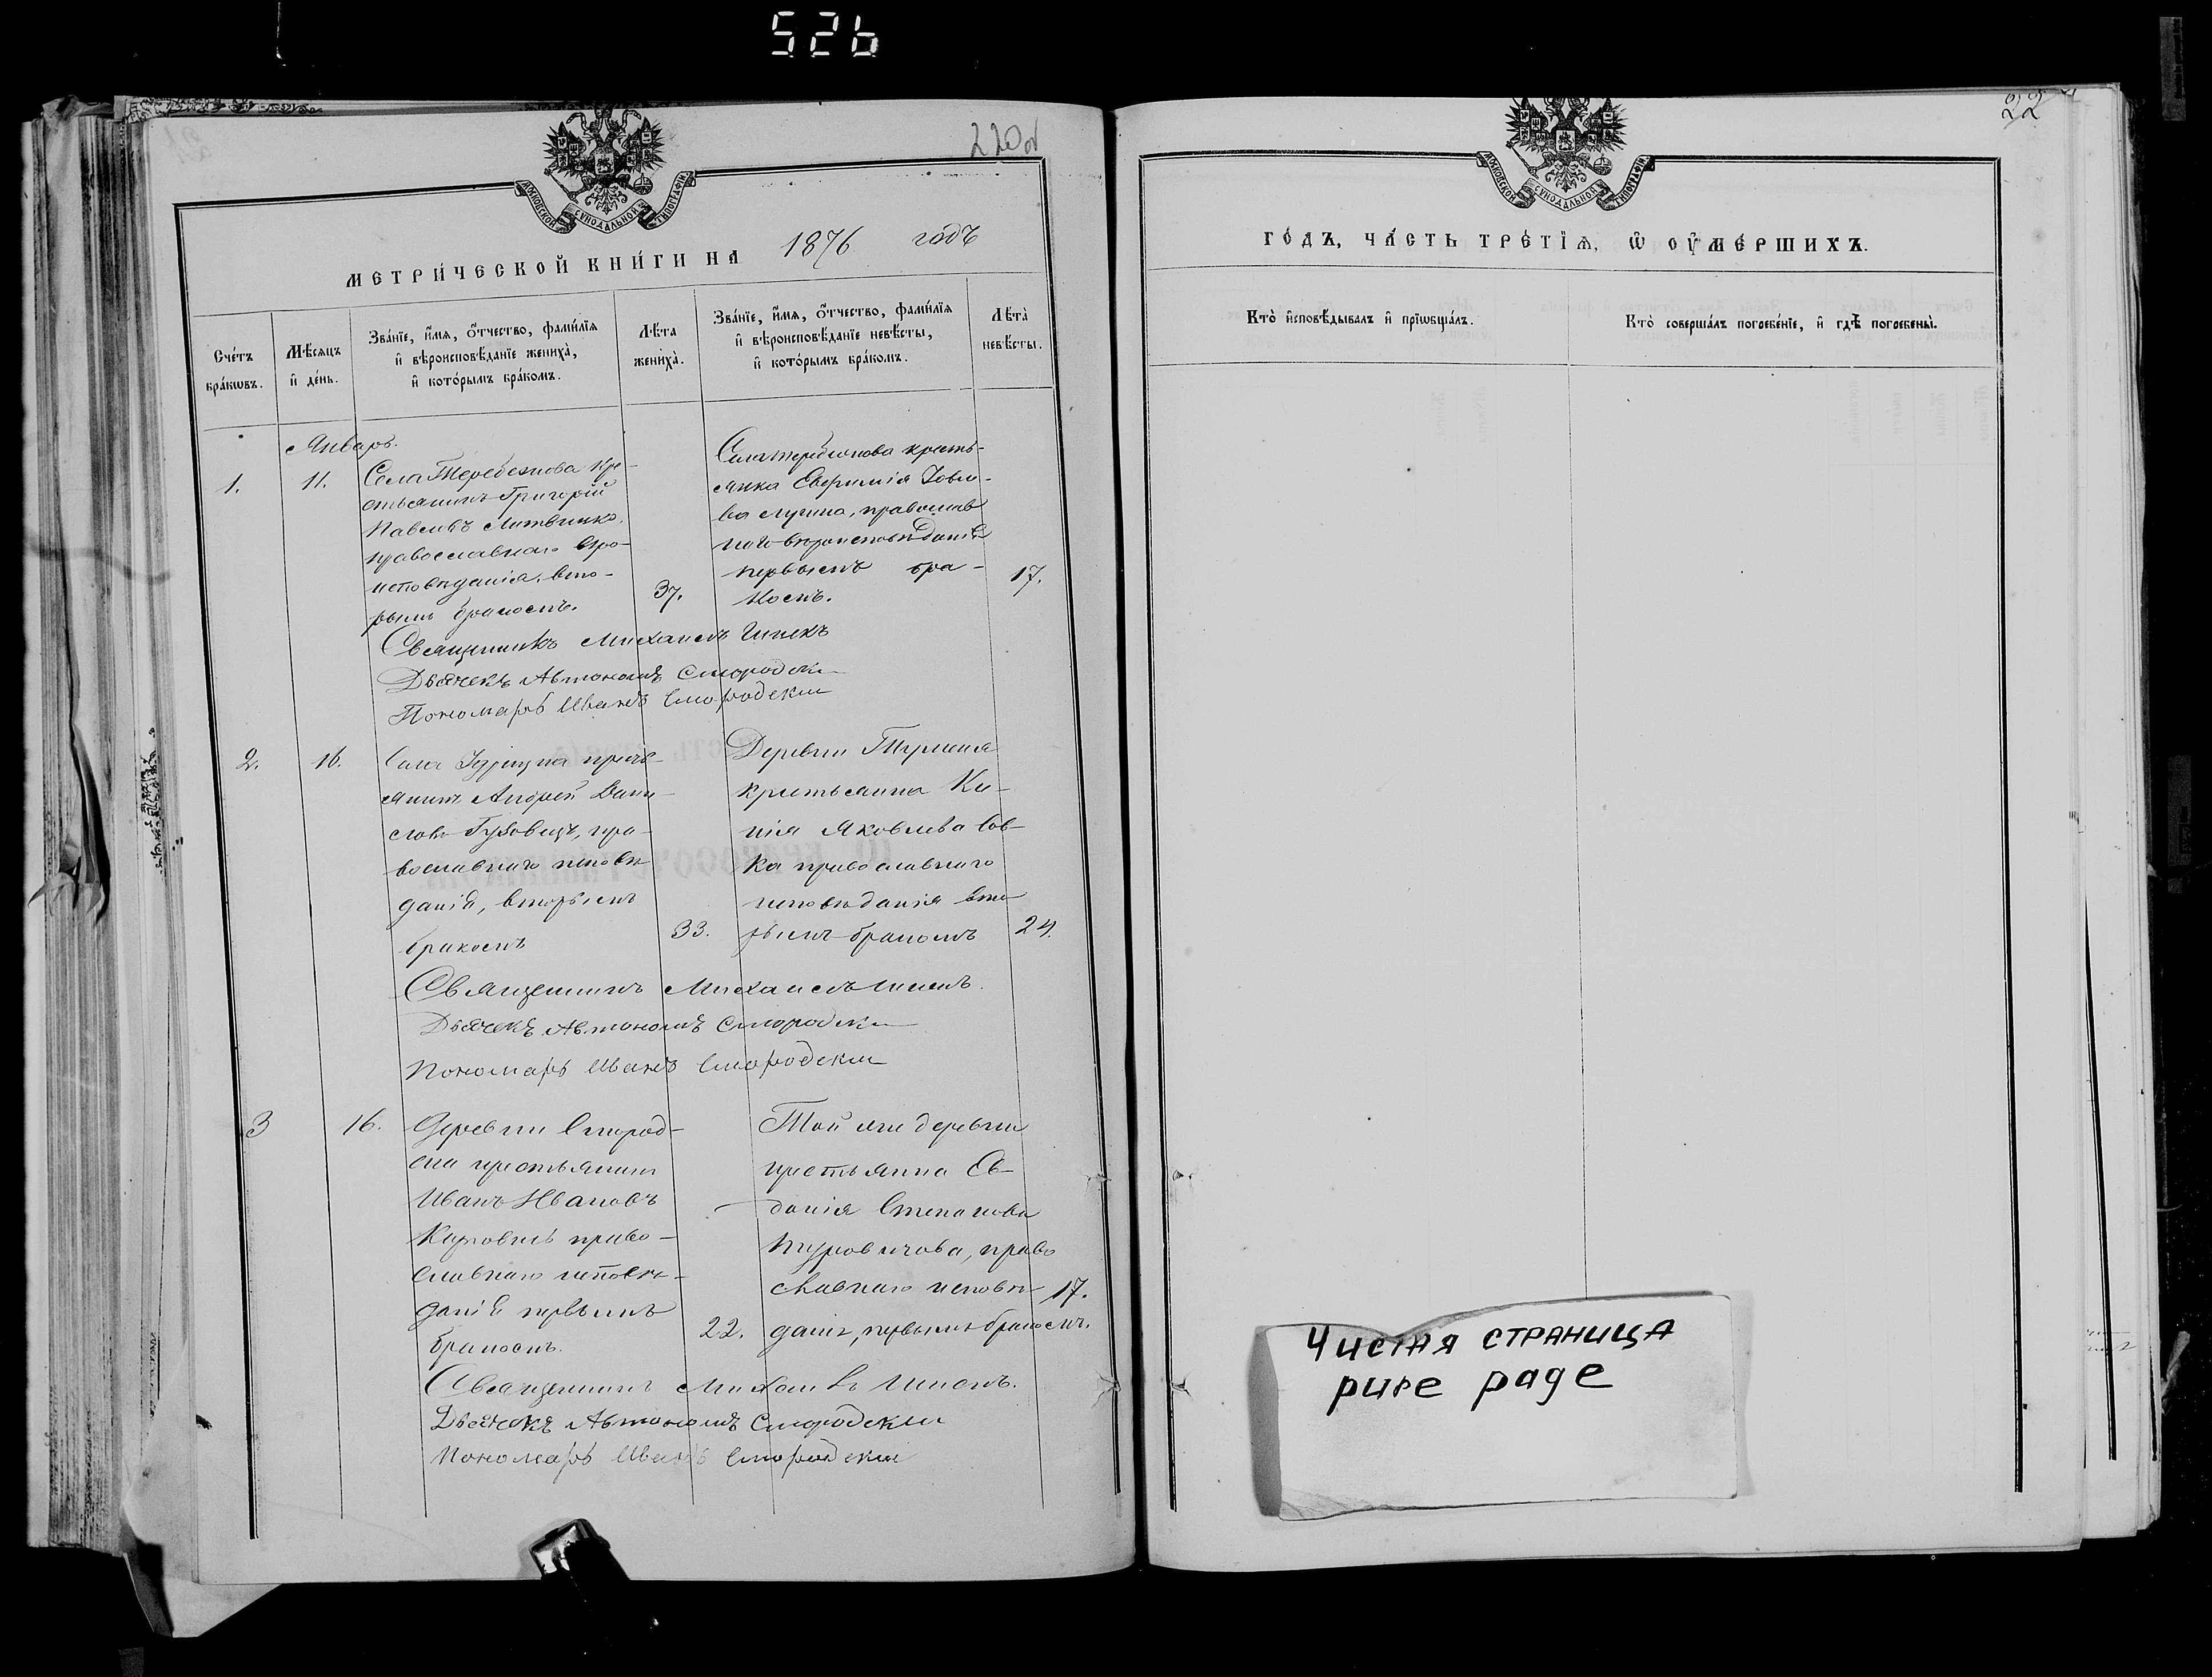 526
220об
22
МОСКОВСКОЙ СУНОДАЛЬНОЙ ТИПОГРАФІИ
МОСКОВСКОЙ СУНОДАЛЬНОЙ ТИПОГРАФІИ
МЕТРИ́ЧЕСКОЙ КНИ́ГИ НА 1876 годъ
Сче́тъ бра́кѡвъ.
Мѣ́сяцъ и҆ де́нь.
Зва́нїе, и҆́мѧ, ѻ҆́тчество, фами́лїѧ
и҆ вѣроисповѣ́данїе жениха̀,
и҆ кото́рымъ бра́комъ.
Лѣ́та
жениха̀.
Зва́нїе, и҆́мѧ, ѻ҆́тчество, фами́лїѧ
и҆ вѣроисповѣ́данїе невѣ́сты,
и҆ кото́рымъ бра́комъ.
Лѣ́та̀
невѣ́сты.
Январь.
1.
11.
Села Теребежова кре-
стьянинъ Григорій
Павловъ Литвинко,
православнаго вѣро-
исповѣданія, вто-
рымъ бракомъ.
37.
Села Теребежова кресть-
янка Евфимія
православ
наго вѣроисповѣданія
первымъ бра-
комъ.
17.
Священникъ Михаилъ
Дьячекъ Автономъ Смородски
Пономарь Иванъ Смородски
2.
16.
Села
янинъ Андрей Дани-
ловъ пра-
вославнаго исповѣ
данія, вторымъ
бракомъ
33.
Деревни
крестьянка
нія Яковлева
ка православнаго
исповѣданія вто
рымъ бракомъ
24.
Священникъ Михаилъ
Дьячекъ Автономъ Смородски
Пономарь Иванъ Смородски
3
16.
Деревни Смород-
ска крестьянинъ
Иванъ Ивановъ
право-
славнаго исповѣ-
данія первымъ
бракомъ.
22.
Той же деревни
крестьянка Ев-
докія Степанова
право
славнаго исповѣ
данія, первымъ бракомъ.
17.
Священникъ Михаилъ
Дьячекъ Автономъ Смородски
Пономарь Иванъ Смородски
ГО́ДЪ, ЧА́СТЬ ТРЕ́ТЇѦ, Ѽ ОУ҆МЕ́РШИХЪ.
Кто̀ и҆сповѣ́дывалъ и҆ прїѡбща́лъ.
Кто̀ соверша́лъ погребе́нїе, и҆ гдѣ̀ погребены̀.
Чистая страница
pure page